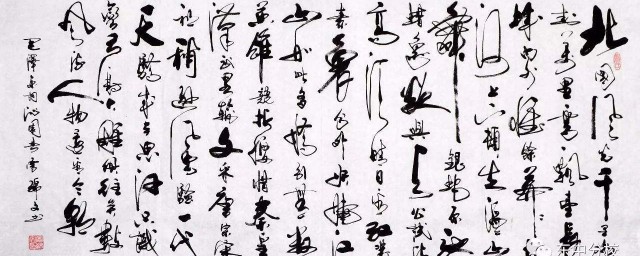 北国风光千里
冰封万里雪飘望长
城内外惟余莽莽大
河上下顿失滔滔山
舞银蛇原驰
蜡象欲与天公试比
高须晴日看红装
素裹分外妖娆江
山如此多娇引无数
英雄竞折腰惜秦皇
汉武略输文采唐宗宋
祖稍逊风骚一代
天骄成吉思汗只识
弯弓射大雕俱往矣数
风流人物还看今朝
毛泽东词沁园春雪